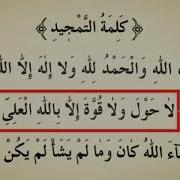 ﴿ كَلِمَةُ التَّمْجِيدِ ﴾
اللهِ وَالْحَمْدُ لِلّٰهِ وَلَا إِلٰهَ إِلَّا اللهُ
لَا حَوْلَ وَلَا قُوَّةَ إِلَّا بِاللهِ الْعَلِيِّ
اللهُ كَانَ وَمَا لَمْ يَشَأْ لَمْ يَكُنْ